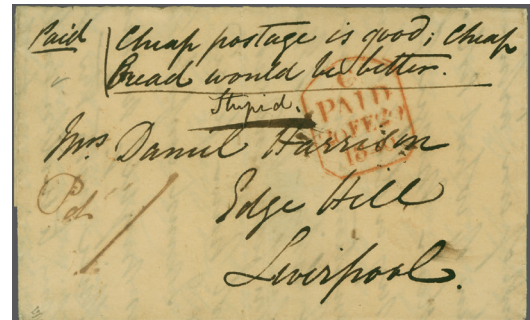 Paid
Cheap postage is good; Cheap
Bread would be better.
Stupid.
C
PAID
FE 29
Mrs Daniel Harrison
Pd 1
Edge Hill
Liverpool.